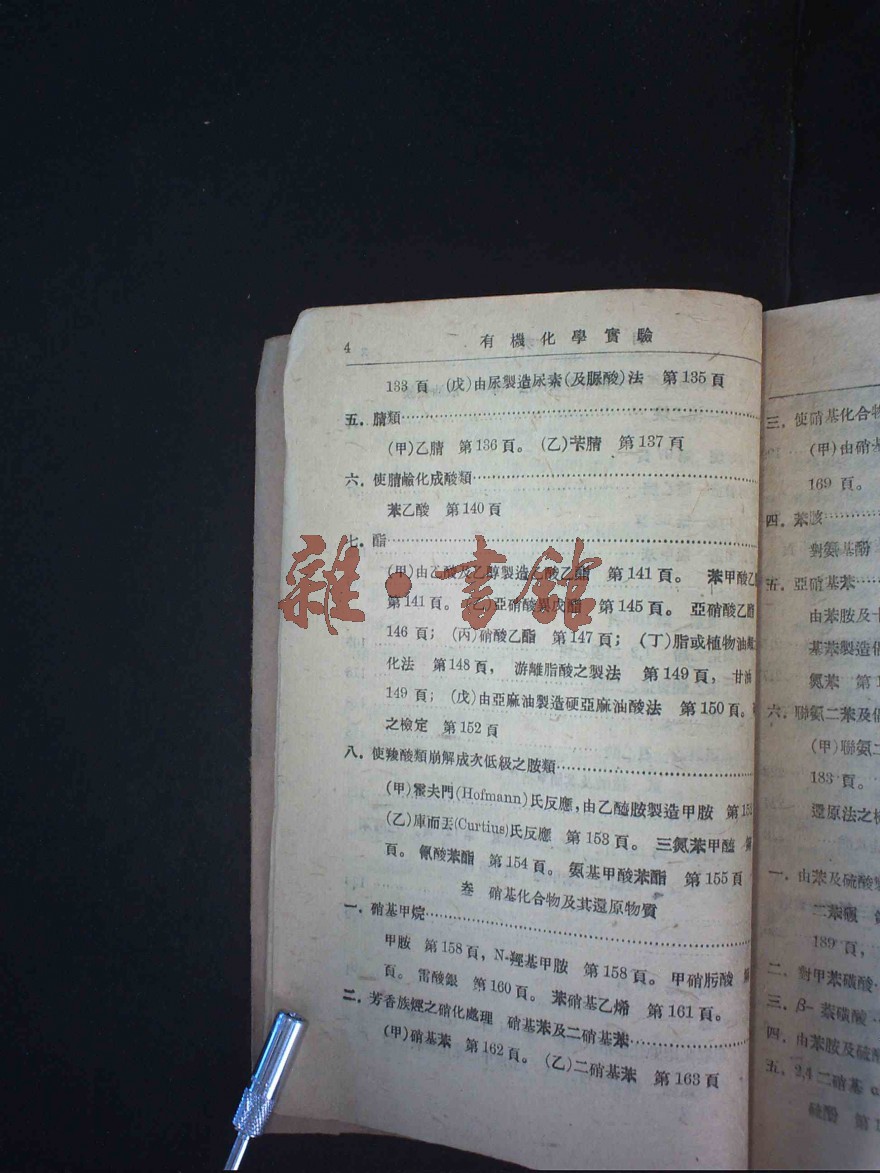 4 有機化學實驗
133 頁 (戊)由尿製造尿素(及脲酸)法 第135頁
五．腈類
(甲)乙腈 第136頁。 (乙)苄腈 第137頁
六．使腈鹼化成酸類
苯乙酸 第140頁
七．酯
(甲)由乙酸及乙醇製造乙酸乙酯 第141頁。 苯甲酸乙
第141頁。 (乙)亞硝酸異戊酯 第145頁。 亞硝酸乙酯
146 頁； (丙)硝酸乙酯 第147頁； (丁)脂或植物油
化法 第148頁， 游離脂酸之製法 第149頁， 甘油
149 頁； (戊)由亞麻油製造硬亞麻油酸法 第150頁。
之檢定 第152頁
八．使羧酸類崩解成次低級之胺類
(甲)霍夫門(Hofmann)氏反應，由乙醯胺製造甲胺 第15
(乙)庫而丟(Curtius)氏反應 第153頁。 三氮苯甲醯
頁。 氰酸苯酯 第154頁。 氨基甲酸苯酯 第155頁
叁 硝基化合物及其還原物質
一．硝基甲烷
甲胺 第158頁，N-羥基甲胺 第158頁。 甲硝肟酸
頁。 雷酸銀 第160頁。 苯硝基乙烯 第161頁。
二．芳香族烴之硝化處理 硝基苯及二硝基苯
(甲)硝基苯 第162頁。 (乙)二硝基苯 第163頁
三．使硝基化合物
(甲)由硝基
169 頁。
四．苯胲
對氨基酚
五．亞硝基苯
由苯胺及
基苯製造
氮苯 第1
六．聯氨二苯及
(甲)聯氨二
183 頁。
還原法之
一．由苯及硫酸製
二苯碸
189頁，
二．對甲苯磺酸
三．β-萘磺酸
四．由苯胺及硫酸
五．2,4二硝基
硫酚 第1
雜·書館